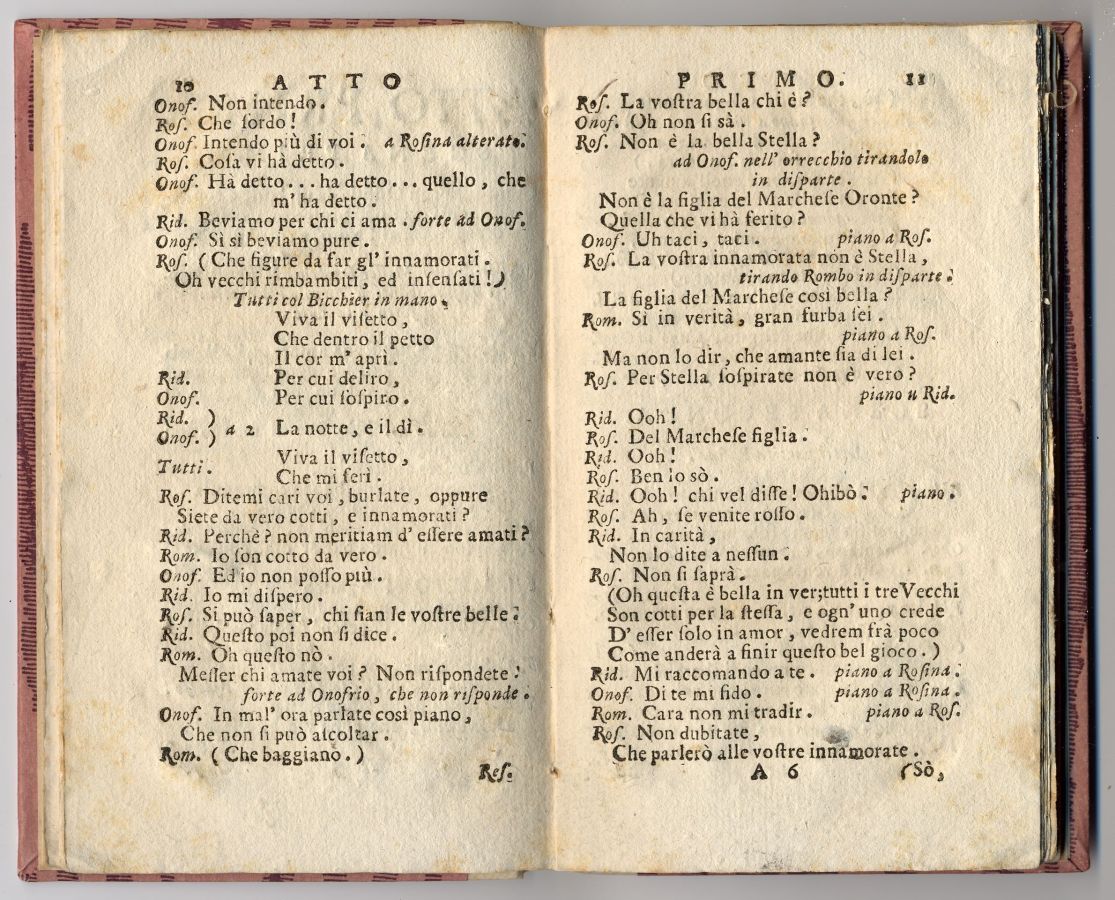 10 ATTO
Onof. Non intendo.
Roſ. Che ſordo!
Onof. Intendo più di voi. a Roſina alterato.
Roſ. Coſa vi hà detto.
Onof. Hà detto... ha detto... quello, che
m' ha detto.
Rid. Beviamo per chi ci ama. forte ad Onof.
Onof. Sì sì beviamo pure.
Roſ. (Che figure da far gl' innamorati.
Oh vecchi rimbambiti, ed inſenſati!)
Tutti col Bicchier in mano,
Viva il viſetto,
Che dentro il petto
Il cor m' aprì.
Rid. Per cui deliro,
Onof. Per cui ſoſpiro.
Rid. )
Onof. ) a 2 La notte, e il dì.
Tutti. Viva il viſetto,
Che mi ferì.
Roſ. Ditemi cari voi, burlate, oppure
Siete da vero cotti, e innamorati?
Rid. Perchè? non meritiam d' eſſere amati?
Rom. Io ſon cotto da vero.
Onof. Ed io non poſſo più.
Rid. Io mi diſpero.
Roſ. Si può ſaper, chi ſian le voſtre belle.
Rid. Queſto poi non ſi dice.
Rom. Oh queſto nò.
Meſſer chi amate voi? Non riſpondete.
forte ad Onofrio, che non riſponde.
Onof. In mal' ora parlate così piano,
Che non ſi può aſcoltar.
Rom. (Che baggiano.)
Roſ.
PRIMO. 11
Roſ. La voſtra bella chi è?
Onof. Oh non ſi sà.
Roſ. Non è la bella Stella?
ad Onof. nell' orrecchio tirandolo
in diſparte.
Non è la figlia del Marcheſe Oronte?
Quella che vi hà ferito?
Onof. Uh taci, taci. piano a Roſ.
Roſ. La voſtra innamorata non è Stella,
tirando Rombo in diſparte.
La figlia del Marcheſe così bella?
Rom. Sì in verità, gran furba ſei.
piano a Roſ.
Ma non lo dir, che amante ſia di lei.
Roſ. Per Stella ſoſpirate non è vero?
piano a Rid.
Rid. Ooh!
Roſ. Del Marcheſe figlia.
Rid. Ooh!
Roſ. Ben lo sò.
Rid. Ooh! chi vel diſſe! Ohibò. piano.
Roſ. Ah, ſe venite roſſo.
Rid. In carità,
Non lo dite a neſſun.
Roſ. Non ſi ſaprà.
(Oh queſta è bella in ver; tutti i tre Vecchi
Son cotti per la ſteſſa, e ogn' uno crede
D' eſſer ſolo in amor, vedrem frà poco
Come anderà a finir queſto bel gioco.)
Rid. Mi raccomando a te. piano a Roſina.
Onof. Di te mi fido. piano a Roſina.
Rom. Cara non mi tradir. piano a Roſ.
Roſ. Non dubitate,
Che parlerò alle voſtre innamorate.
A 6 (Sò,